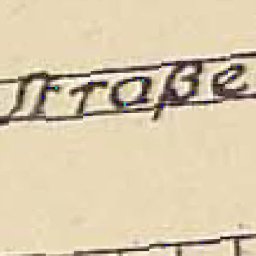 ſtraße